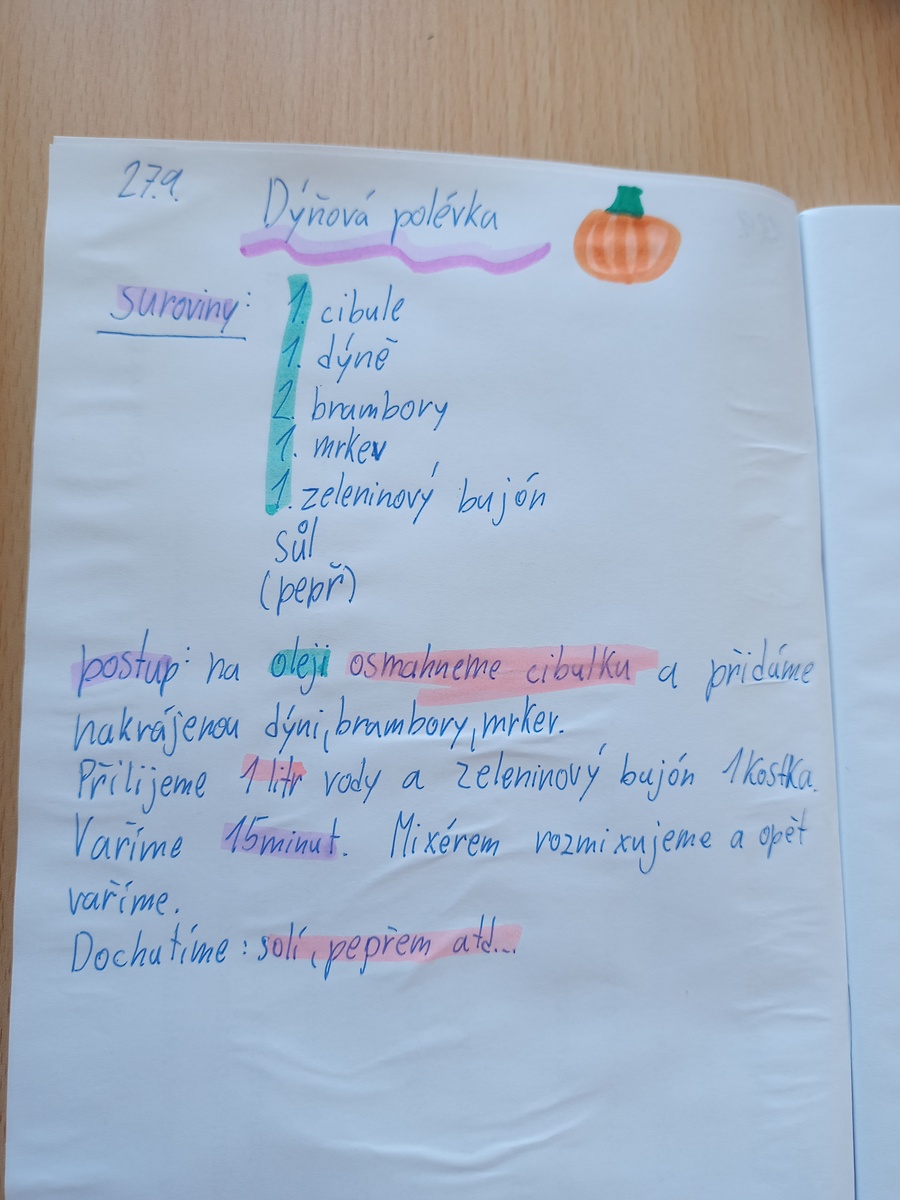 27.9.
Dýňová polévka
suroviny:
1. cibule
1. dýně
2. brambory
1. mrkev
1. zeleninový bujón
sůl
(pepř)
postup: na oleji osmahneme cibulku a přidáme
nakrájenou dýni, brambory, mrkev.
Přilijeme 1 litr vody a zeleninový bujón 1 kostka.
Vaříme 15 minut. Mixérem rozmixujeme a opět
vaříme.
Dochutíme: solí, pepřem atd...